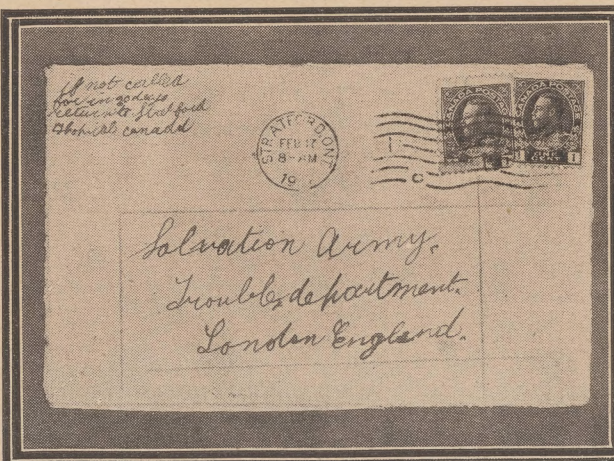 if not called
for in 10 days
return to Statford
Canada
STRATFORD, ONT.
FEB 17
8-AM
19
CANADA POSTAGE
CANADA POSTAGE
1
1
Salvation Army.
Trouble, department.
London England.